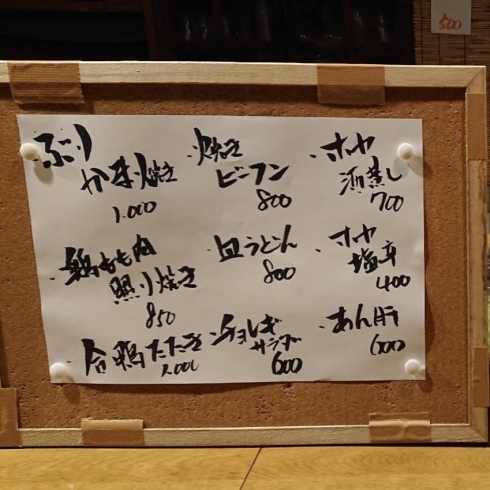 ぶり
かま焼き
1.000
・鶏もも肉
照り焼き
850
・合鴨たたき
1.000
・焼き
ビーフン
800
・皿うどん
800
・チョレギ
サラダ
600
・ホヤ
酒蒸し
700
・ホヤ
塩辛
400
・あん肝
600
500